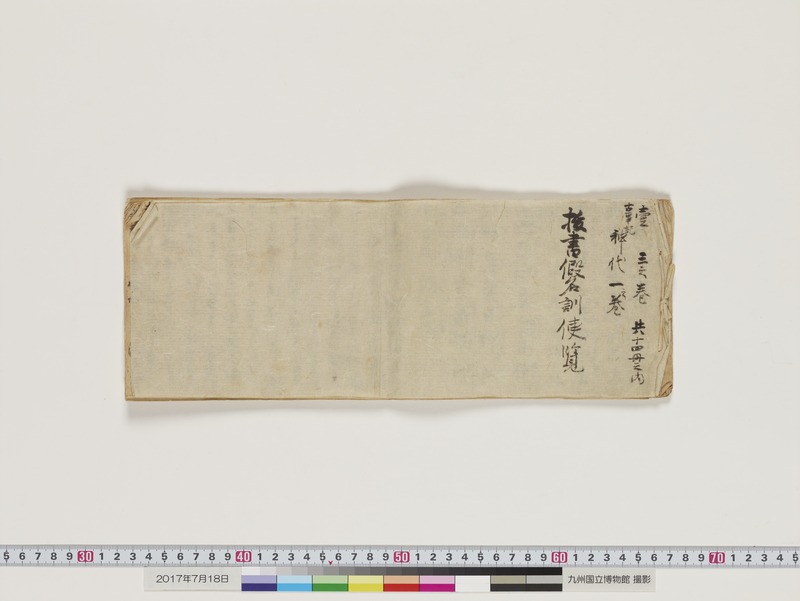 壹 三之巻 共十四冊之内
古事記 神代 一之巻
抜書假名訓便覧
5 6 7 8 9 30 1 2 3 4 5 6 7 8 9 40 1 2 3 4 5 6 7 8 9 50 1 2 3 4 5 6 7 8 9 60 1 2 3 4 5 6 7 8 9 70 1 2 3 4 5
2017年7月18日
九州国立博物館 撮影